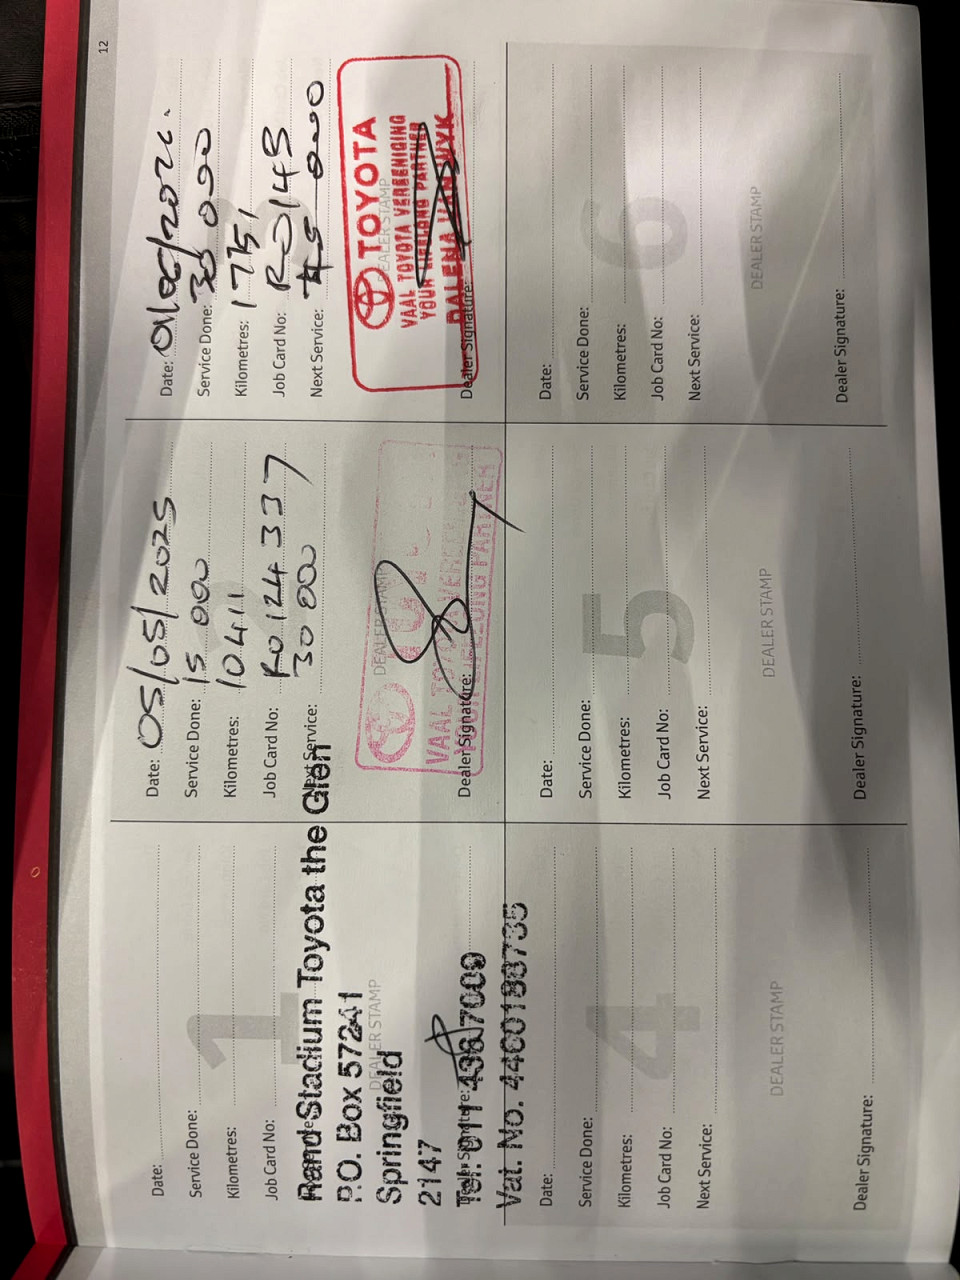 12
1
Date:
Service Done:
Kilometres:
Job Card No:
Rand Stadium Toyota the Glen
P.O. Box 57241
DEALER STAMP
Springfield
2147
Tel: 011 436 7009
Vat. No. 4400188735
2
Date: 05/05/2025
Service Done: 15 000
Kilometres: 10411
Job Card No: R0124337
Next Service: 30 000
DEALER STAMP
VAAL TOYOTA
YOUR LIFELONG PARTNER
Dealer Signature:
3
Date:
Service Done: 30 000
Kilometres:
Job Card No:
Next Service:
TOYOTA
DEALER STAMP
VAAL TOYOTA VEREENIGING
YOUR LIFELONG PARTNER
DALENA VAN WYK
Dealer Signature:
4
Date:
Service Done:
Kilometres:
Job Card No:
Next Service:
DEALER STAMP
Dealer Signature:
5
Date:
Service Done:
Kilometres:
Job Card No:
Next Service:
DEALER STAMP
Dealer Signature:
6
Date:
Service Done:
Kilometres:
Job Card No:
Next Service:
DEALER STAMP
Dealer Signature: